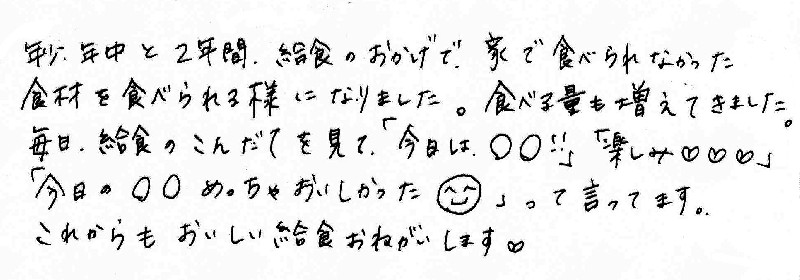 年少、年中と2年間、給食のおかげで、家で食べられなかった
食材を食べられる様になりました。食べる量も増えてきました。
毎日、給食のこんだてを見て、「今日は、○○!!」「楽しみ♡♡♡」
「今日の○○めっちゃおいしかった😊」って言ってます。
これからもおいしい給食おねがいします♡